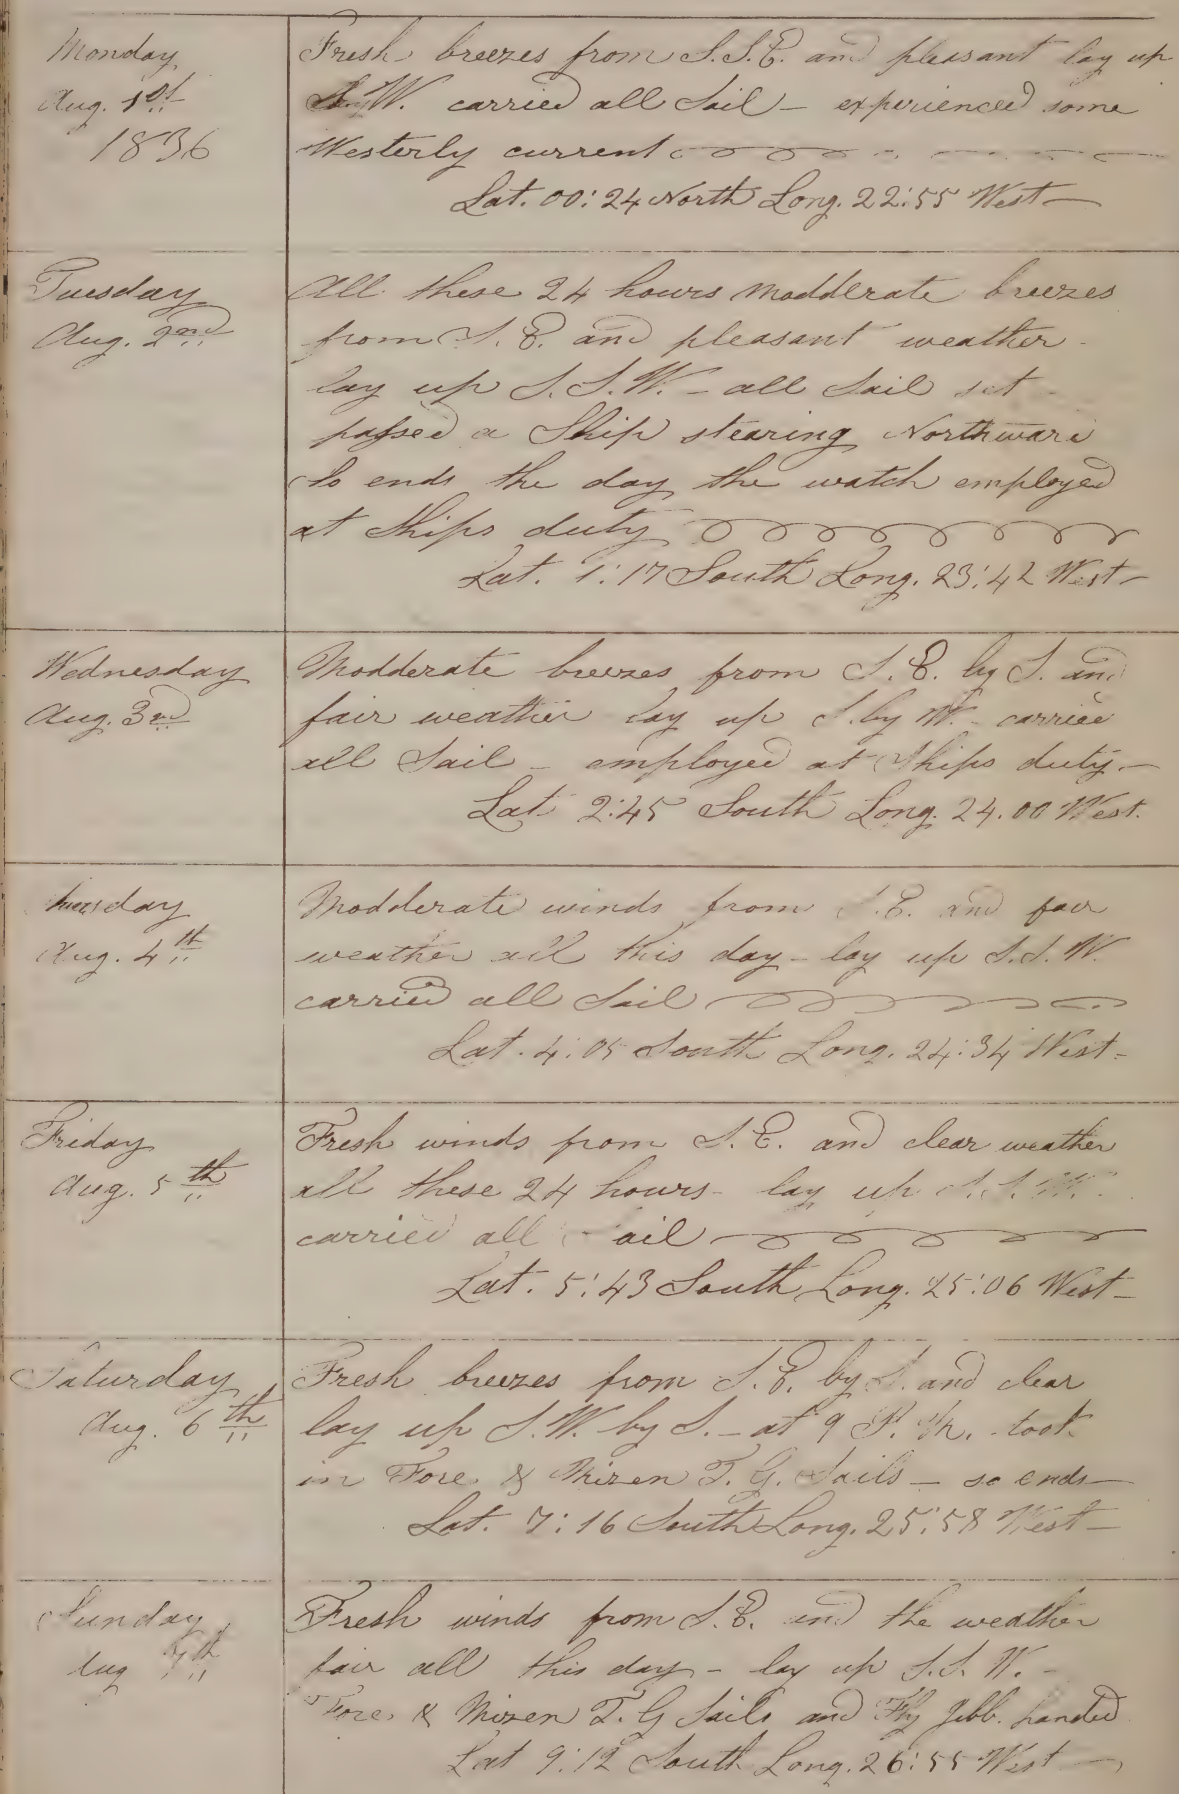 Monday
Aug. 1st
1836
Fresh breezes from S.S.E. and pleasant lay up
S.W. carried all Sail – experienced some
Westerly current
Lat. 00:24 North Long. 22:55 West –
Tuesday
Aug. 2nd
All these 24 hours Modderate breezes
from S.E. and pleasant weather
lay up S.S.W. – all Sail set
passed a Ship stearing Northward
So ends the day the watch employed
at Ships duty
Lat. 1:17 South Long. 23:42 West –
Wednesday
Aug. 3rd
Modderate breezes from S.E. by S. and
fair weather lay up S. by W. – carried
all Sail – employed at Ships duty. –
Lat 2:45 South Long. 24.00 West.
Thursday
Aug. 4th
Modderate winds from S.E. and fair
weather all this day – lay up S.S.W.
carried all Sail
Lat. 4:05 South Long. 24:34 West –
Friday
Aug. 5th
Fresh winds from S.E. and clear weather
all these 24 hours – lay up S.S.W.
carried all Sail
Lat. 5:43 South Long. 25:06 West –
Saturday
Aug. 6th
Fresh breezes from S.E. by S. and clear
lay up S.W. by S. – at 9 P.M. took
in Fore & Mizen T.G. Sails – so ends –
Lat. 7:16 South Long. 25:58 West –
Sunday
Aug 7th
Fresh winds from S.E. and the weather
fair all this day – lay up S.S.W. –
Fore & Mizen T.G Sails and Fly Jibb. handed
Lat 9:12 South Long. 26:55 West –